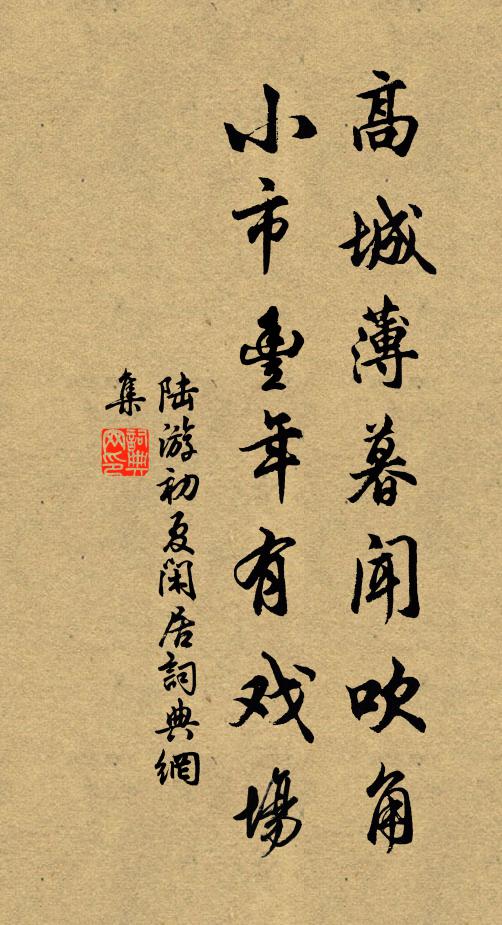 高城薄暮闻吹角
小市豊年有戏場
陆游初夏闲居詞典網
集
詞典
网印